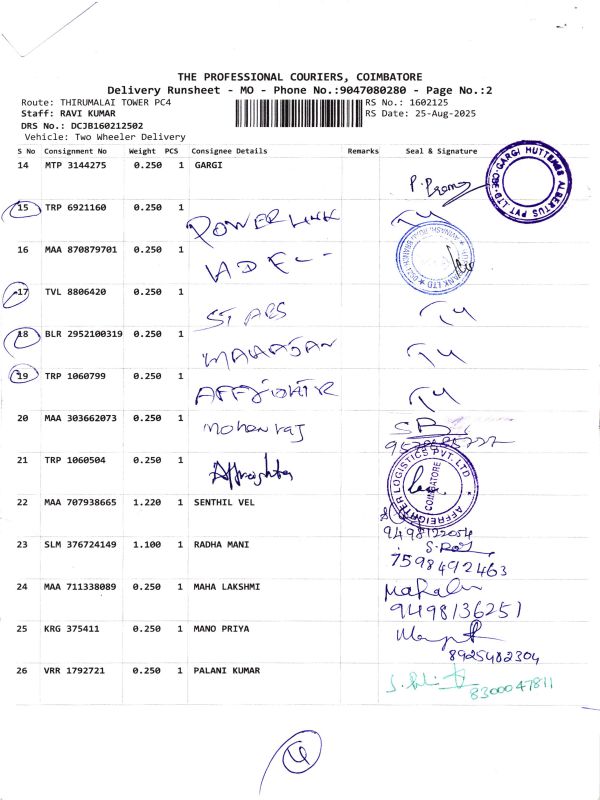 THE PROFESSIONAL COURIERS, COIMBATORE
Delivery Runsheet - MO - Phone No.:9047080280 - Page No.:2
Route: THIRUMALAI TOWER PC4 RS No.: 1602125
Staff: RAVI KUMAR RS Date: 25-Aug-2025
DRS No.: DCJB160212502
Vehicle: Two Wheeler Delivery
S No Consignment No Weight PCS Consignee Details Remarks Seal & Signature
14 MTP 3144275 0.250 1 GARGI
GARGI HUTTENES ALBERTUS PVT. LTD. CBE
15 TRP 6921160 0.250 1 POWER LINK
16 MAA 870879701 0.250 1
17 TVL 8806420 0.250 1 STARS
18 BLR 2952100319 0.250 1 MAHAJAN
19 TRP 1060799 0.250 1
20 MAA 303662073 0.250 1 Mohan raj
21 TRP 1060504 0.250 1 Affreighter
AFFREIGHTER LOGISTICS PVT. LTD
COIMBATORE
22 MAA 707938665 1.220 1 SENTHIL VEL
9498122054
23 SLM 376724149 1.100 1 RADHA MANI
7598492463
24 MAA 711338089 0.250 1 MAHA LAKSHMI
9498136251
25 KRG 375411 0.250 1 MANO PRIYA
8925482304
26 VRR 1792721 0.250 1 PALANI KUMAR
8300047811